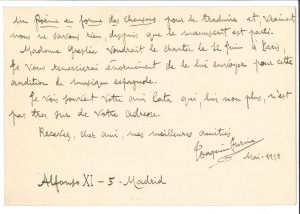 un Poème en forme des Chansons pour le traduire et vraiment
nous ne savons rien, despues que le manuscrit est parti.
Madame voudrait le chanter le 12 Juin à Paris,
je vous remercierai énormement de le lui envoyer pour cette
audition de musique espagnole.
Je vois souvent votre ami qui lui non plus, n'est
pas très sur de votre adresse.
Recevez, cher ami, mes meilleurs amitiés,
Joaquin Turina
Mai - 1919
Alfonso XI - 5 - Madrid